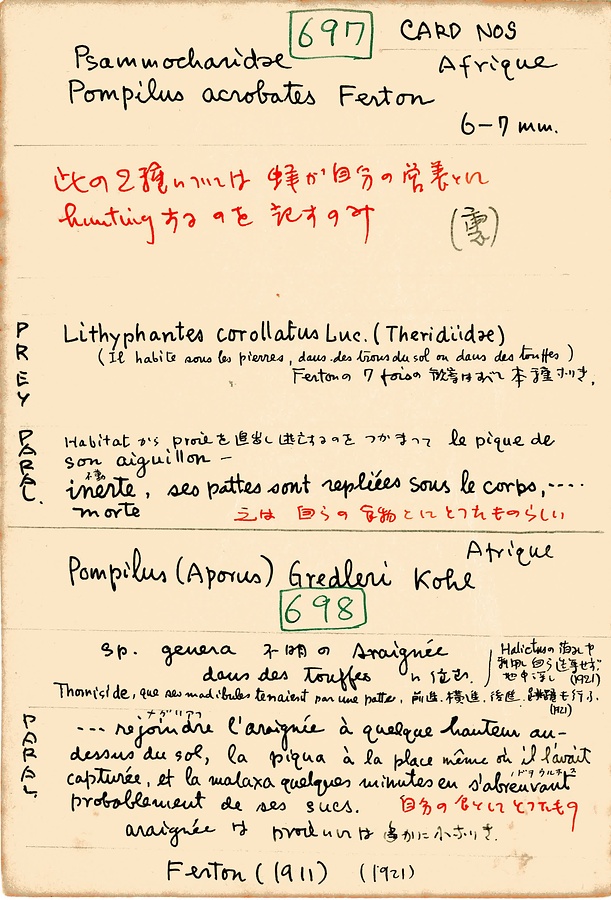 697 CARD NOS
Psammocharidæ Afrique
Pompilus acrobates Ferton
6-7 mm.
此の2種については 蜂が自分の営養とに
huntingするのを 記すのみ
PREY
Lithyphantes corollatus Luc. (Theridiidæ)
(Il habite sous les pierres, dans des trous du sol ou dans des touffes)
Fertonの 7 foisの 本種
PARAL.
Habitat から proie を追出し逃亡するのを つかまって le pique de
son aiguillon —
inerte, ses pattes sont repliées sous le corps, ....
morte 之は 自らの食物とにとつたものらしい
Afrique
Pompilus (Aporus) Gredleri Kohl
698
sp. genera 不明の araignée
dans des touffes
Halictusの
(1921)
Thomisidæ, que ses madibules tenaient par une patte, 前進. 横進. 後進.
(1921)
PARAL.
... rejoindre l'araignée à quelque hauteur au-
dessus du sol, la piqua à la place même où il l'avait
capturée, et la malaxa quelques minutes en s'abreuvant
probablement de ses sucs. 自分の食としてとつたもの
araignée は
Ferton (1911) (1921)